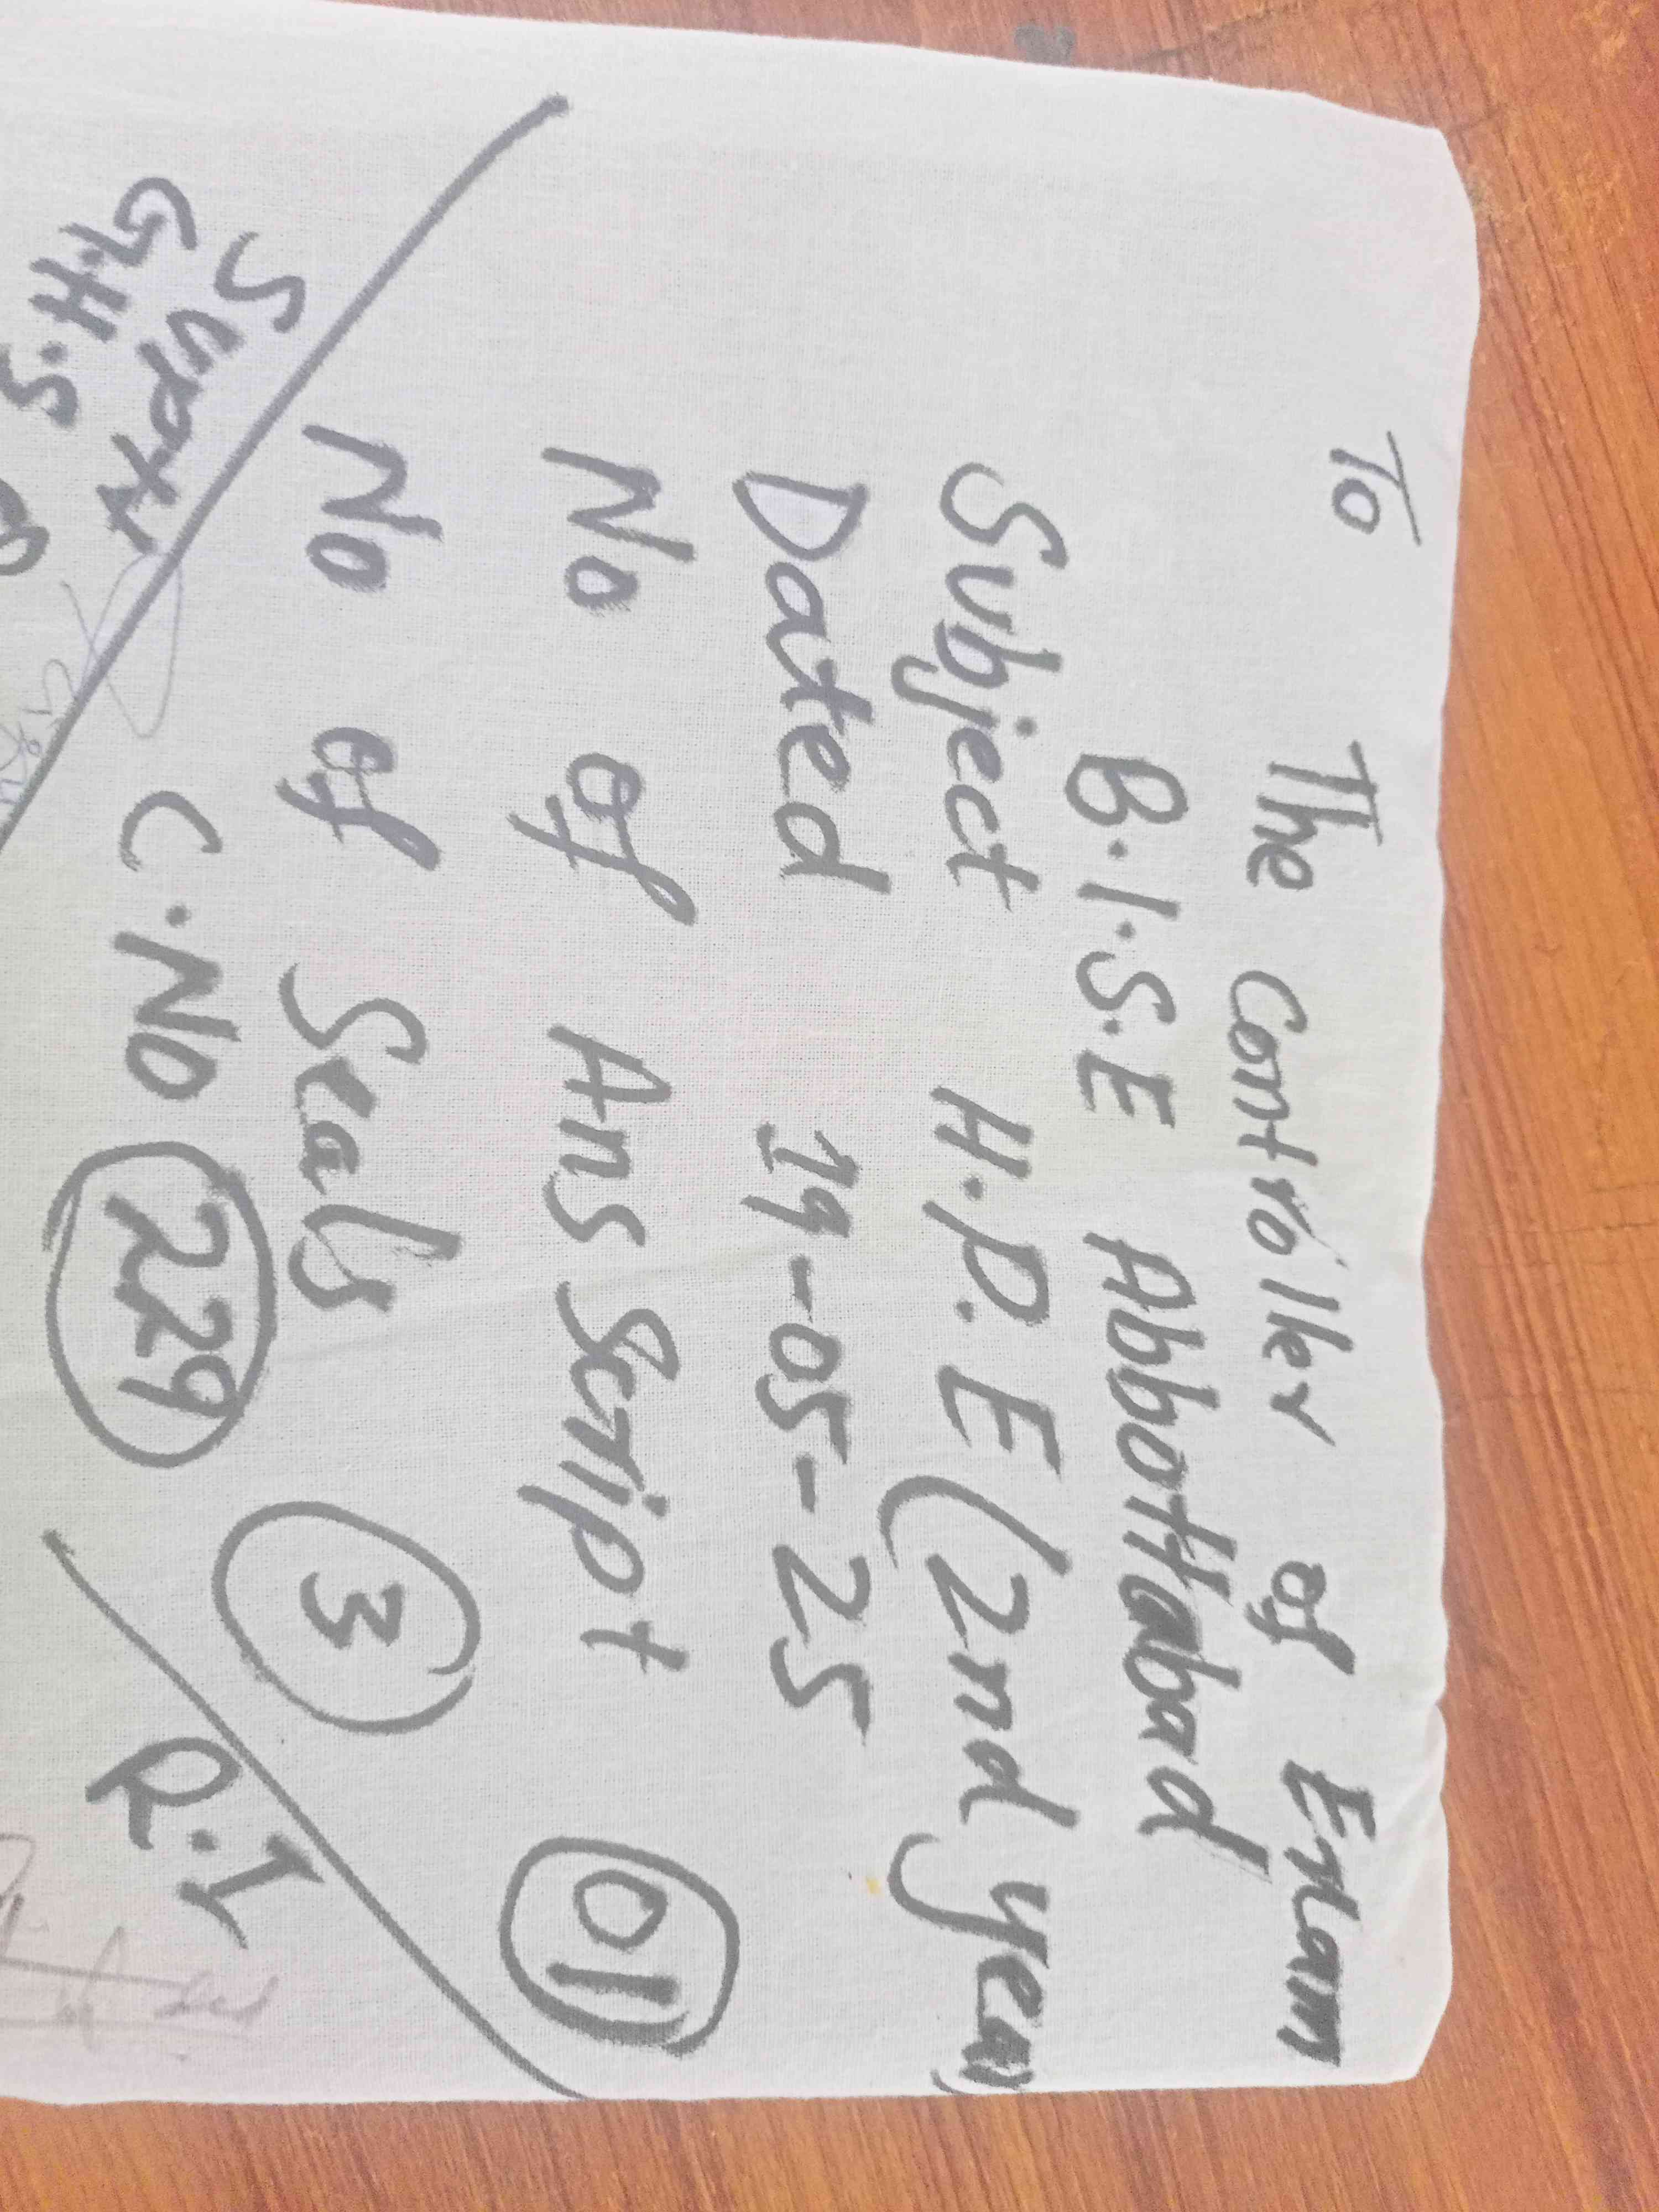 To
The Controller of Exam
B.I.S.E Abbottabad
Subject H.P.E (2nd year)
Dated 19-05-25
No of Ans Script 011
No of Seals 3
C.No 229
Supdt
G.H.S
R.I